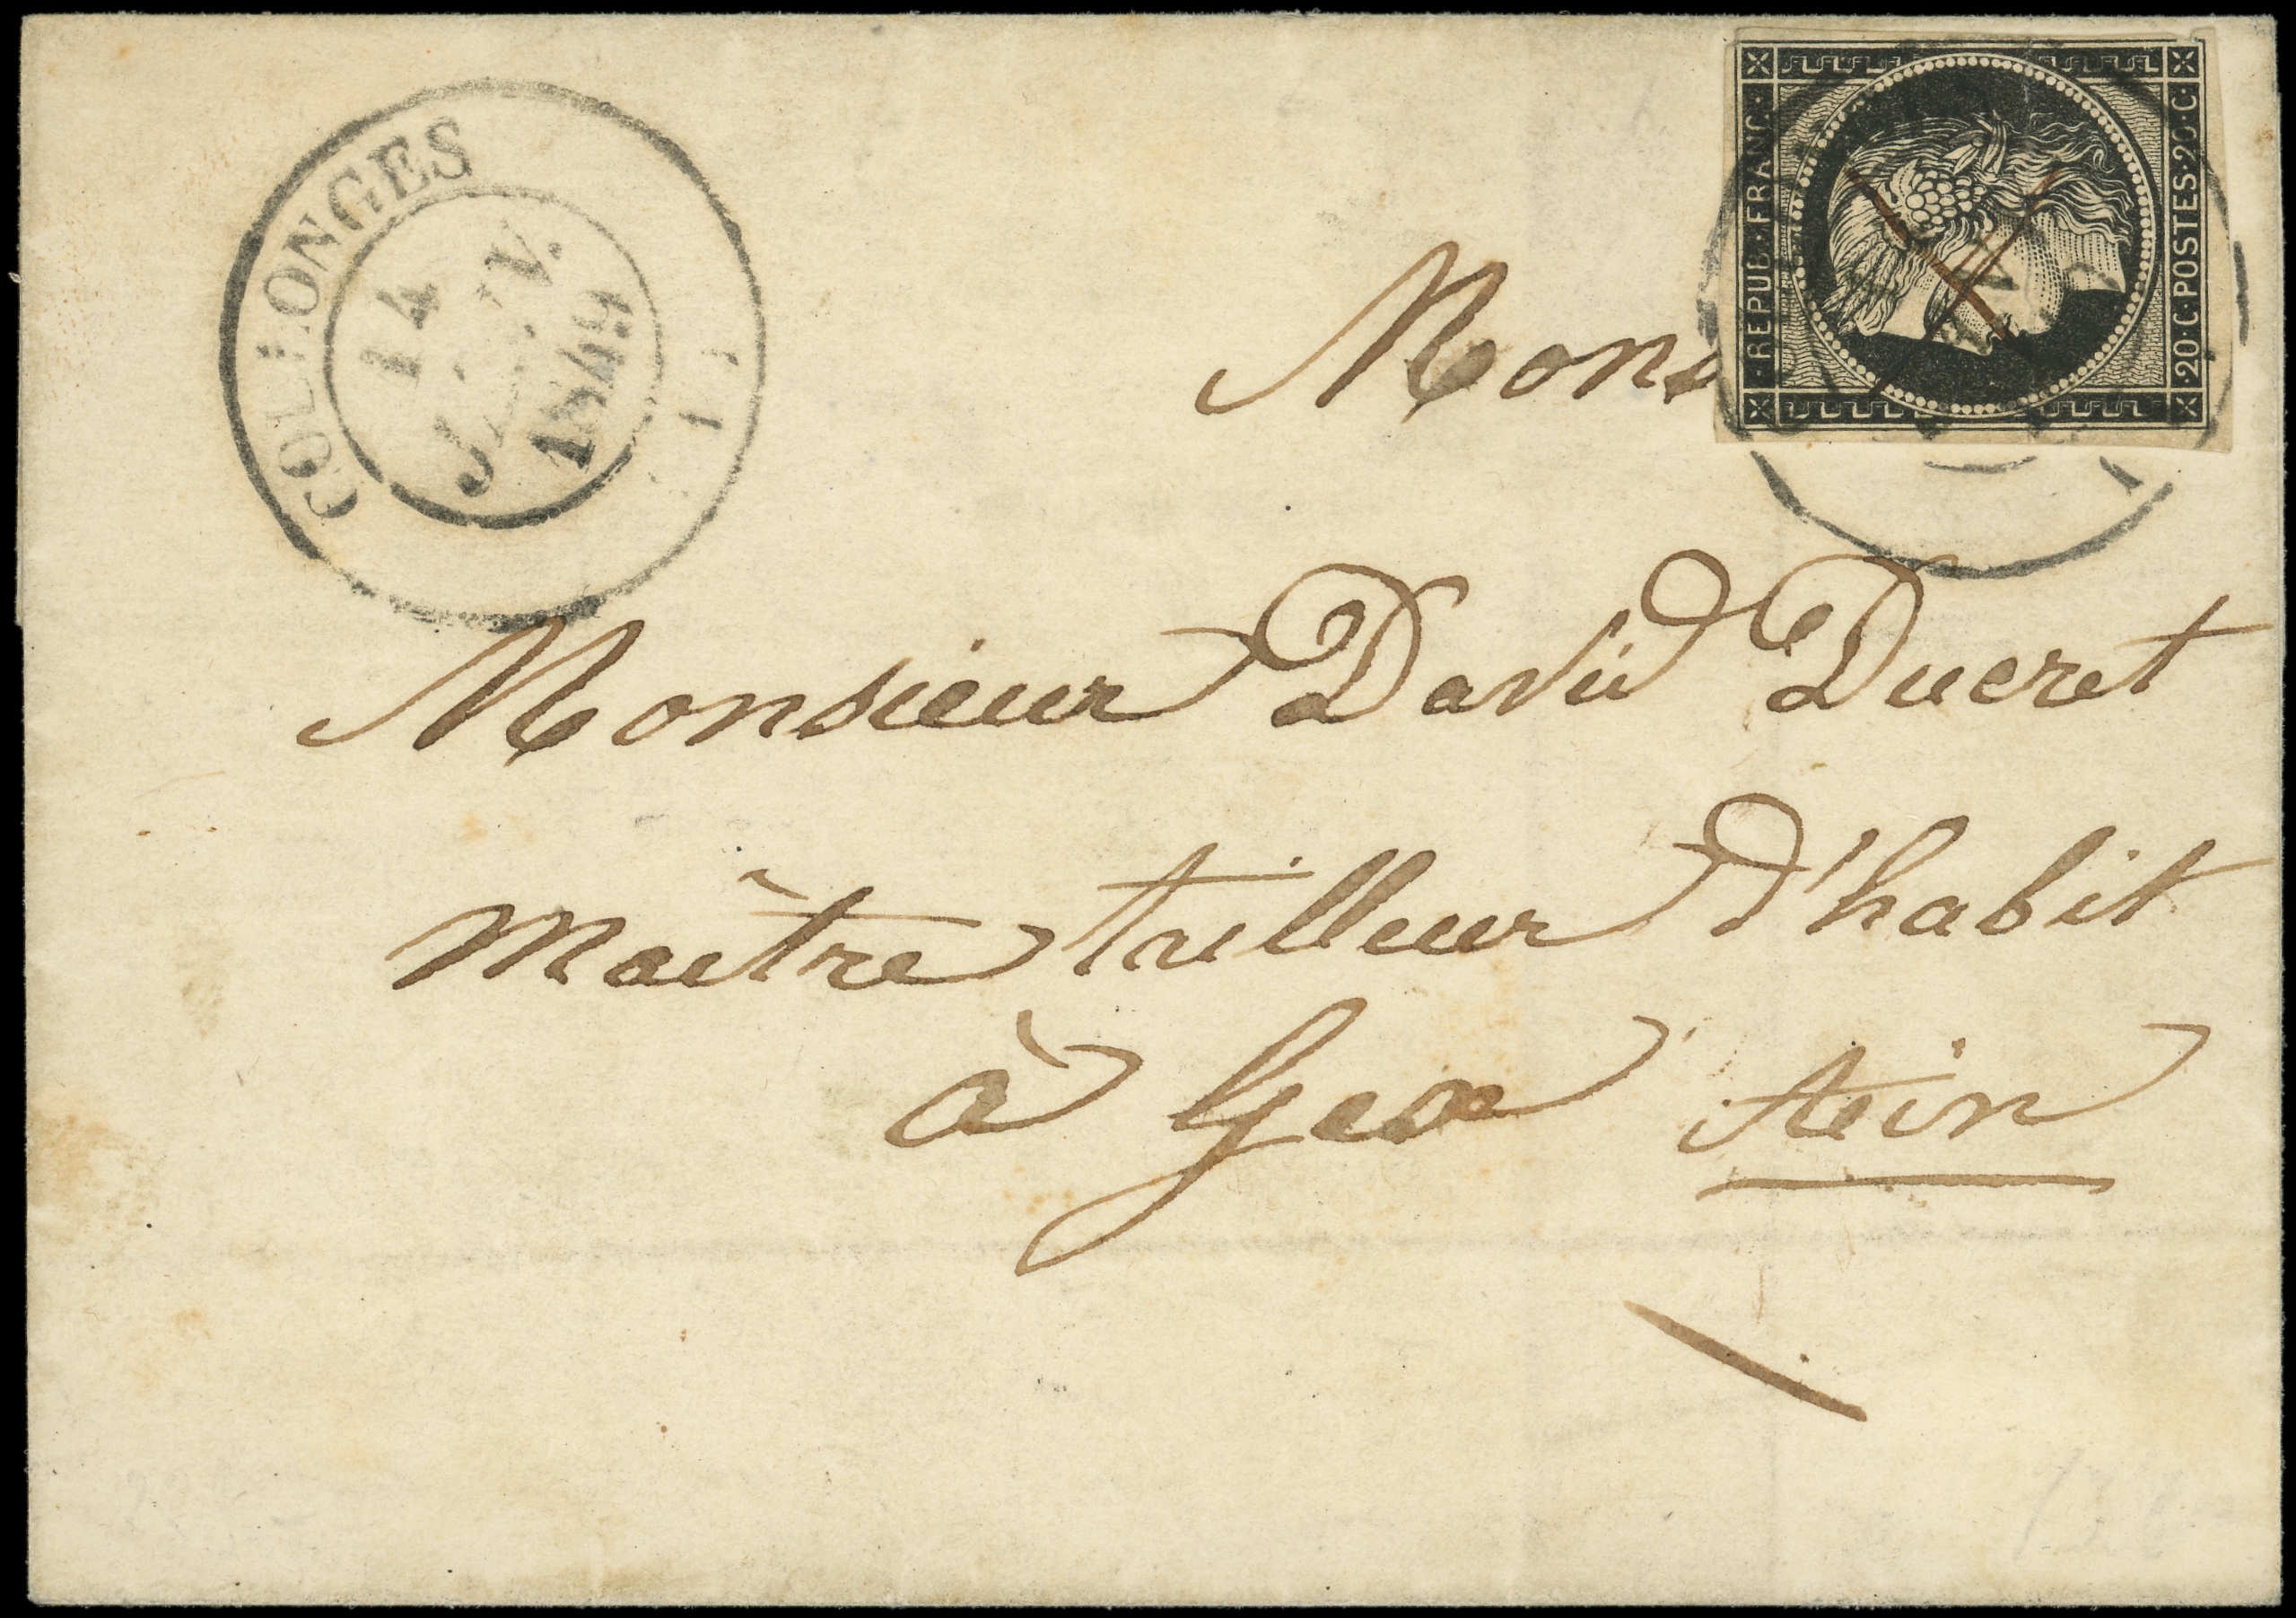 COLLONGES
14
JANV.
1849
REPUB·FRANC·
20·C·POSTES·20·C·
Mons
Monsieur David Ducret
Maître tailleur d'habit
à Gex Ain